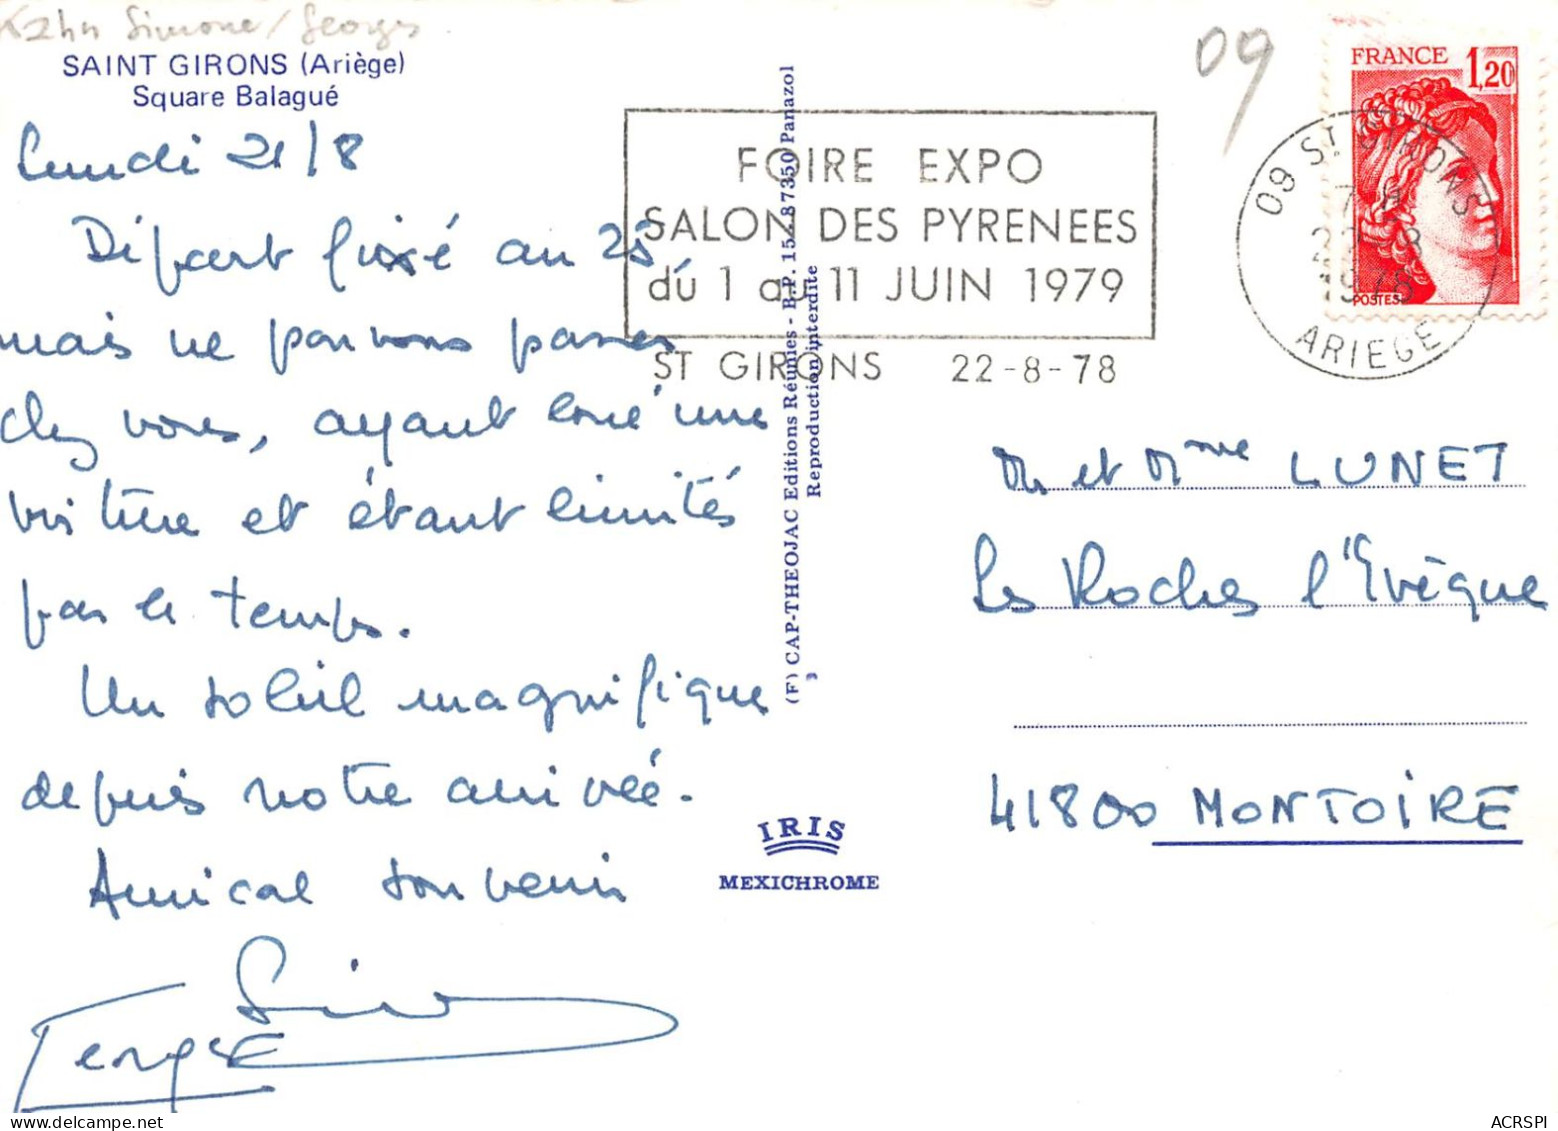 Kahn Simone / Georges
SAINT GIRONS (Ariège)
Square Balagué
Lundi 21/8
Départ fixé au 25,
mais ne pouvons passer
chez vous, ayant loué une
voiture et étant limités
par le temps.
Un soleil magnifique
depuis notre arrivée.
Amical souvenir
(F) CAP-THEOJAC Editions Réunies - B.P. 15 - 87350 Panazol
Reproduction interdite
3
IRIS
MEXICHROME
09
FOIRE EXPO
SALON DES PYRENEES
du 1 au 11 JUIN 1979
ST GIRONS 22-8-78
FRANCE 1,20
POSTES
09 ST GIRONS
22-8
1978
ARIEGE
Mr et Mme LUNET
Les Roches l'Evêque
41800 MONTOIRE
ACRSPI